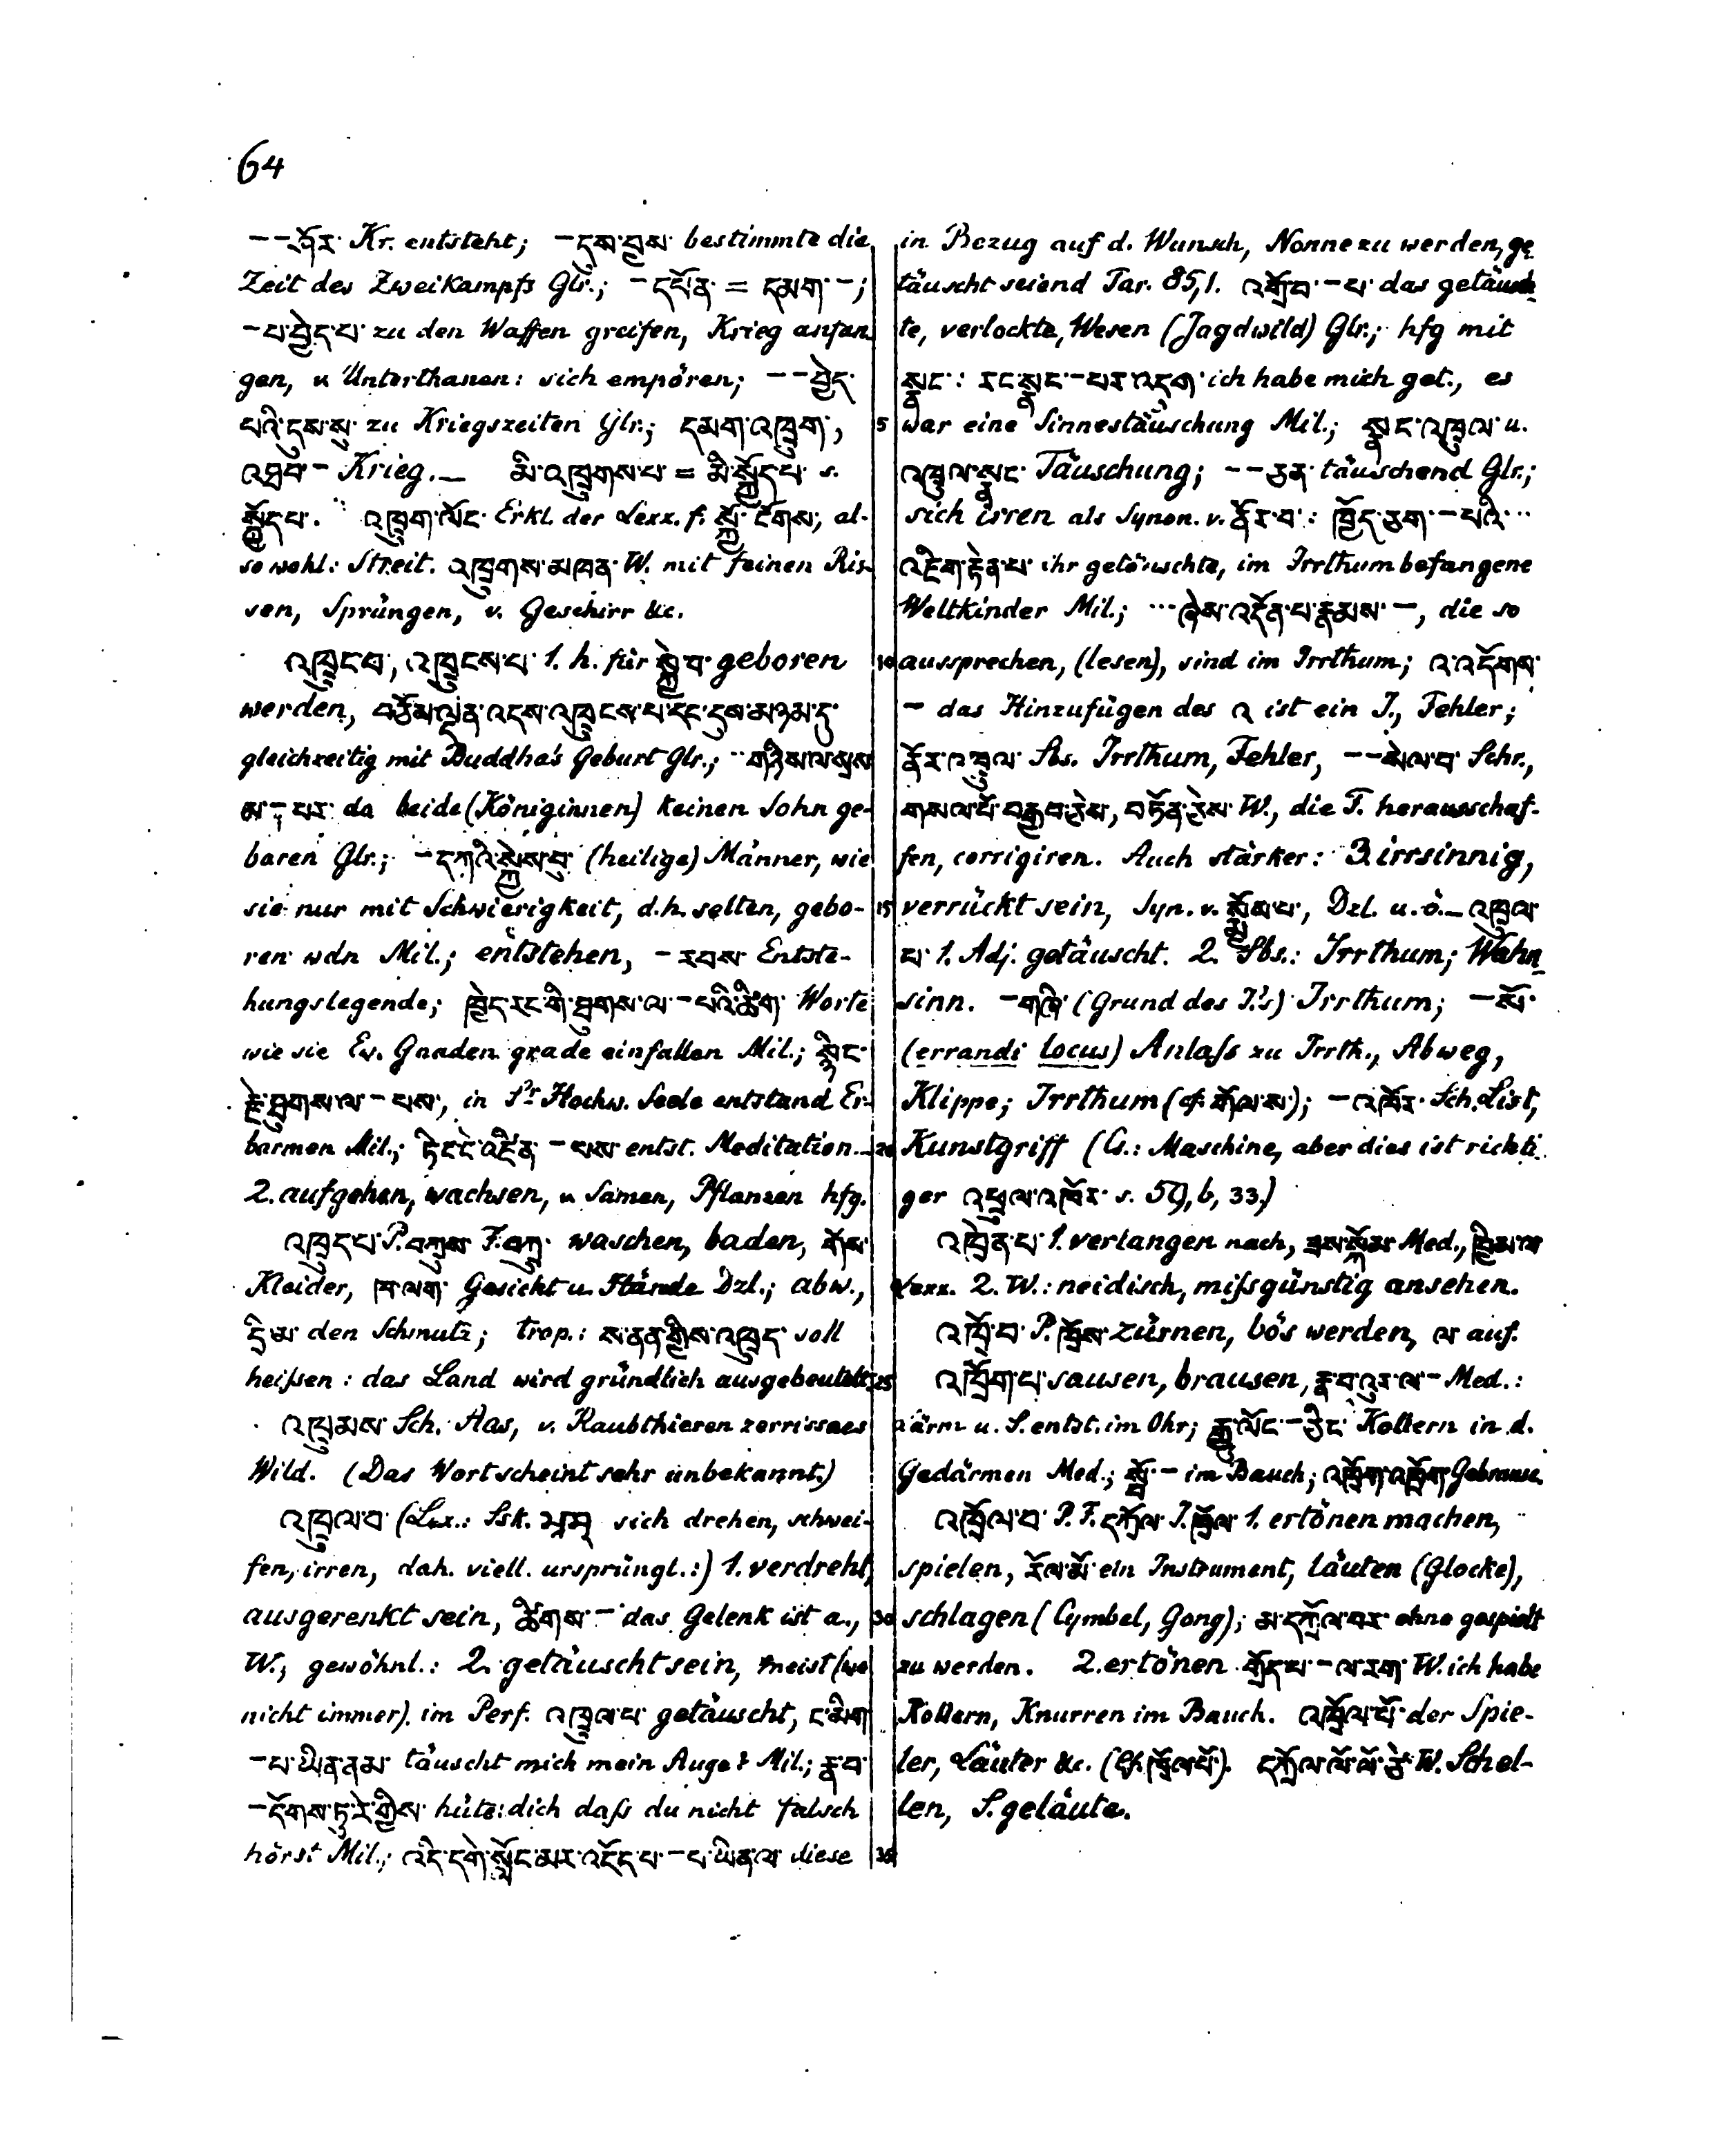 64
– – ཤོར་ Kr. entsteht; – དུས་བྱས་ bestimmte die
Zeit des Zweikampfs Glr.; – དཔོན་ = དམག་ –;
– པ་བྱེད་པ་ zu den Waffen greifen, Krieg anfan-
gen, v. Unterthanen: sich empören; – – བྱེད་
པའི་དུས་སུ་ zu Kriegszeiten Glr.; དམག་འཁྲུག་,
འཐབ་ – Krieg. – མི་འཁྲུགས་པ་ = མི་སྐྱོད་པ་ s.
སྐྱོད་པ་. འཁྲུག་ལོང་ Erkl. der Lexx. f. al-
so wohl: Streit. འཁྲུགས་མཁན་ W. mit feinen Ris-
sen, Sprüngen, v. Geschirr &c.
འཁྲུང་བ་, འཁྲུངས་པ་ 1. h. für སྐྱེ་བ་ geboren
werden, བཅོམ་ལྡན་འདས་འཁྲུངས་པ་དང་དུས་མཉམ་དུ་
gleichzeitig mit Buddha's Geburt Glr.; ·· གཉིས་ལ་སྲས་
མ་ – པར་ da beide (Königinnen) keinen Sohn ge-
baren Glr.; – དཀའི་སྐྱེས་བུ་ (heilige) Männer, wie
sie nur mit Schwierigkeit, d.h. selten, gebo-
ren wdn Mil.; entstehen, – རབས་ Entste-
hungslegende; ཁྱེད་རང་གི་ཐུགས་ལ་ – པའི་ཚིག་ Worte
wie sie Ew. Gnaden grade einfallen Mil.; སྙིང་
རྗེ་ཐུགས་ལ་ – པས་, in Sr Hochw. Seele entstand Er-
barmen Mil.; ཏིང་ངེ་འཛིན་ – པས་ entst. Meditation. –
2. aufgehen, wachsen, v. Samen, Pflanzen hfg.
འཁྲུད་པ་ P. བཀྲུས་ F. བཀྲུ་ waschen, baden, གོས་
Kleider, ཁ་ལག་ Gesicht u. Hände Dzl.; abw.,
དྲི་མ་ den Schmutz; trop.: ས་ནན་གྱིས་འཁྲུད་ soll
heißen: das Land wird gründlich ausgebeutelt.
འཁྲུམས་ Sch. Aas, v. Raubthieren zerrissnes
Wild. (Das Wort scheint sehr unbekannt.)
འཁྲུལ་བ་ (Lex.: Ssk. भ्रम् sich drehen, schwei-
fen, irren, dah. viell. ursprüngl.:) 1. verdreht,
ausgerenkt sein, ཚིགས་ – das Gelenk ist a.,
W.; gewöhnl.: 2. getäuscht sein, meist (wo
nicht immer) im Perf. འཁྲུལ་པ་ getäuscht, ང་མིག་
– པ་ཡིན་ནམ་ täuscht mich mein Auge? Mil.; རྣ་བ་
– དོགས་ཏུ་རེ་གྱིས་ hüte dich daß du nicht falsch
hörst Mil.; འདི་དགེ་སློང་མར་འདོད་པ་ – པ་ཡིན་ལ་ diese
in Bezug auf d. Wunsch, Nonne zu werden, ge-
täuscht seiend Tar. 85,1. འགྲོ་བ་ – པ་ das getäusch-
te, verlockte, Wesen (Jagdwild) Glr.; hfg mit
སྣང་: རང་སྣང་ – པར་འདུག་ ich habe mich get., es
5 war eine Sinnestäuschung Mil.; སྣང་འཁྲུལ་ u.
འཁྲུལ་སྣང་ Täuschung; – – ཅན་ täuschend Glr.;
sich irren als Synon. v. ནོར་བ་: ཁྱོད་ཅག་ – པའི་ ···
འཇིག་རྟེན་པ་ ihr getäuschte, im Irrthum befangene
Weltkinder Mil.; ··· ཞེས་འདོན་པ་རྣམས་ –, die so
10 aussprechen, (lesen), sind im Irrthum; འ་འདོགས་
– das Hinzufügen des འ ist ein I., Fehler;
ནོར་འཁྲུལ་ Sbs. Irrthum, Fehler, – – སེལ་བ་ Schr.,
W., die F. herausschaf-
fen, corrigiren. Auch stärker: 3. irrsinnig,
15 verrückt sein, Syn. v. སྨྱོས་པ་, Dzl. u. ö. – འཁྲུལ་
པ་ 1. Adj. getäuscht. 2. Sbs.: Irrthum; Wahn-
sinn. – གཞི་ (Grund des I.'s) Irrthum; – སོ་
(errandi locus) Anlaß zu Irrth., Abweg,
Klippe; Irrthum (cf. གོལ་ས་); – འཁོར་ Sch. List,
20 Kunstgriff (Cs.: Maschine, aber dies ist richti-
ger འཕྲུལ་འཁོར་ s. 59, b, 33.)
འཁྲེན་པ་ 1. verlangen nach, ཟས་སྐོམ་ Med., ཁྱིམ་ལ་
Lexx. 2. W.: neidisch, mißgünstig ansehen.
འཁྲོ་བ་ P. ཁྲོས་ zürnen, bös werden, ལ་ auf.
25 འཁྲོག་པ་ sausen, brausen, རྣ་བ་འུར་ལ་ – Med.:
Lärm u. S. entst. im Ohr; རྒྱུ་ལོང་ – ཅིང་ Kollern in d.
Gedärmen Med.; ལྟོ་ – im Bauch; འཁྲོག་འཁྲོག་ Gebrause.
འཁྲོལ་བ་ P. F. དཀྲོལ་ I. ཁྲོལ་ 1. ertönen machen,
spielen, རོལ་མོ་ ein Instrument, läuten (Glocke),
30 schlagen (Cymbel, Gong); མ་དཀྲོལ་བར་ ohne gespielt
zu werden. 2. ertönen གྲོད་པ་ – ལ་རག་ W. ich habe
Kollern, Knurren im Bauch. འཁྲོལ་པོ་ der Spie-
ler, Läuter &c. (Cf. ཁྲོལ་པོ་). W. Schel-
len, S. geläute.
35